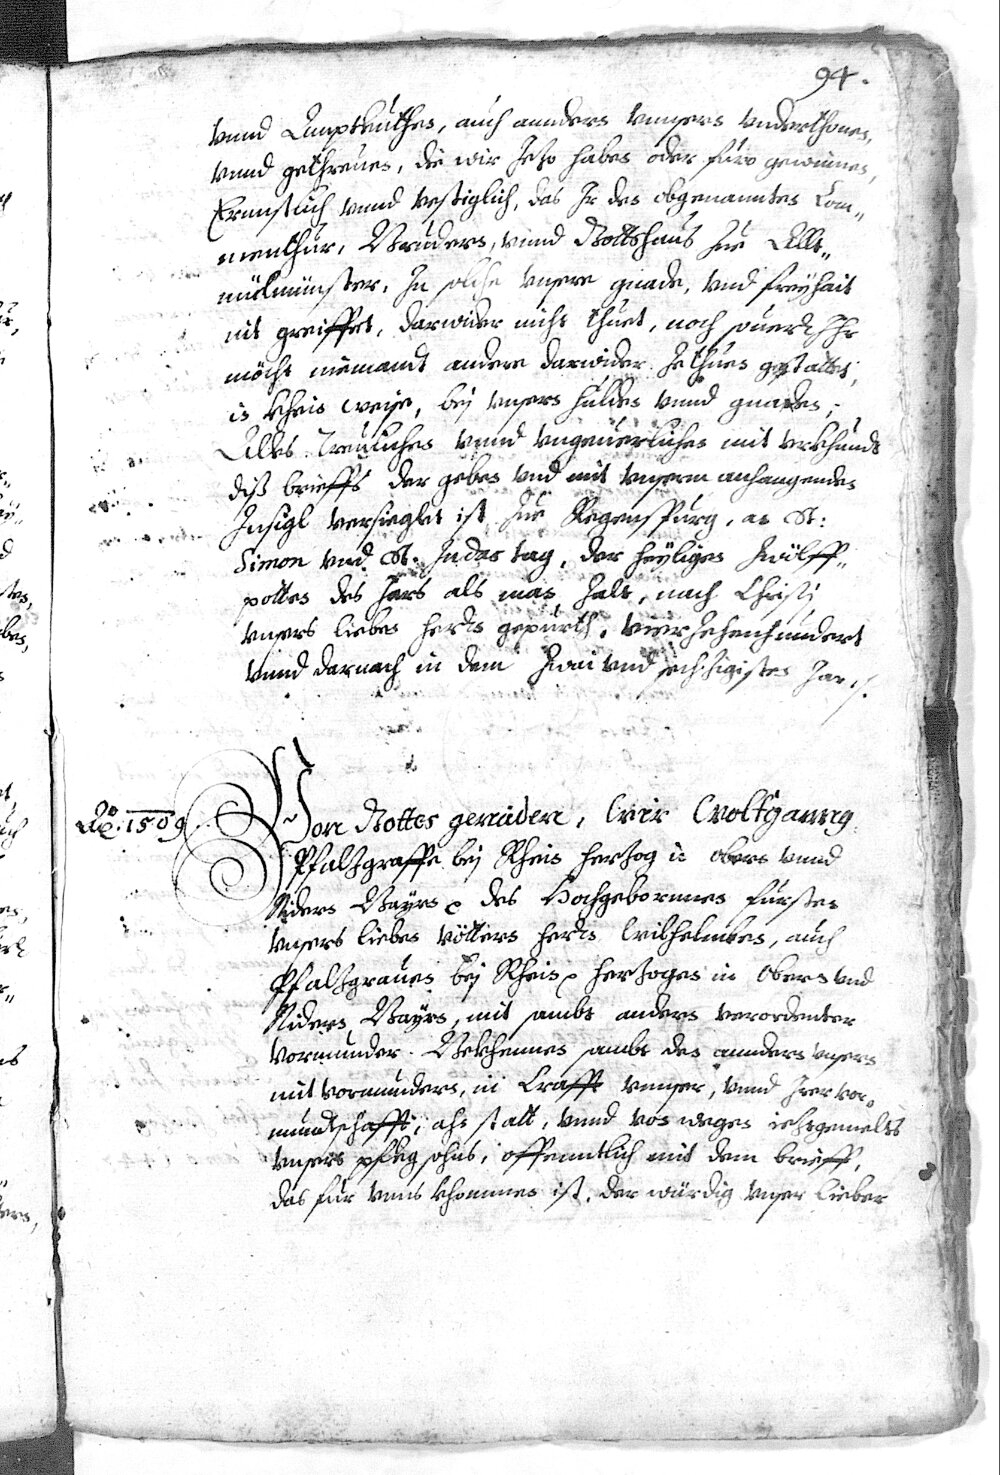 94.
vnnd Ambtleuthen, auch annders vnnsers vnderthonen,
vnnd gethreuen, die wir Jezo haben oder füro gewinnen,
Ernnstlich vnnd vestiglich, das Jr den obgenannten Com„
menthur, Bruders, vnnd Gottshaus zue Allt„
müllmünster, Jn solche vnsere gnade, vnd freÿhait
nit greiffet, darwider nicht thuet, noch souerr Jhr
möcht niemandt andere darwider zethuen gestattet,
in khein weise, beÿ vnsern hulden vnnd gnaden,
Alles Treuliches vnnd vngeuerliches mit vrkhundt
diß brieffs der geben vnd mit vnserm anhangenden
Jnsigl versieglet ist zue Regenspurg, an St:
Simon vnd St. Judas tag, der heÿligen zwölff„
potten des Jars als man zalt, nach Christi
vnsers lieben herrn gepurth, vierzehenhundert
vnnd darnach in dem zwai vnd sechzigisten Jar
Ao. 1509.
Von Gottes genaden, Wir Wolfganng
Pfalzgraffe beÿ Rhein herzog in obern vnnd
Nidern Baÿrn des Hochgebornnen fürsten
vnsers lieben vötters herrn Wilhelmben, auch
Pfalzgrauen beÿ Rhein herzogen in Obern vnd
Nidern Baÿrn, mit sambt andern verordenter
Vormunder. Bekhennen sambt den anndern vnsern
mit vormundern, in Crafft vnnser, vnnd Jrer vor„
mundtschafft, ahn statt, vnnd von wegen iehtgemelts
vnsers pfleg sohns, offenntlich mit dem brieff,
das für vnns khommen ist, der würdig vnser lieber